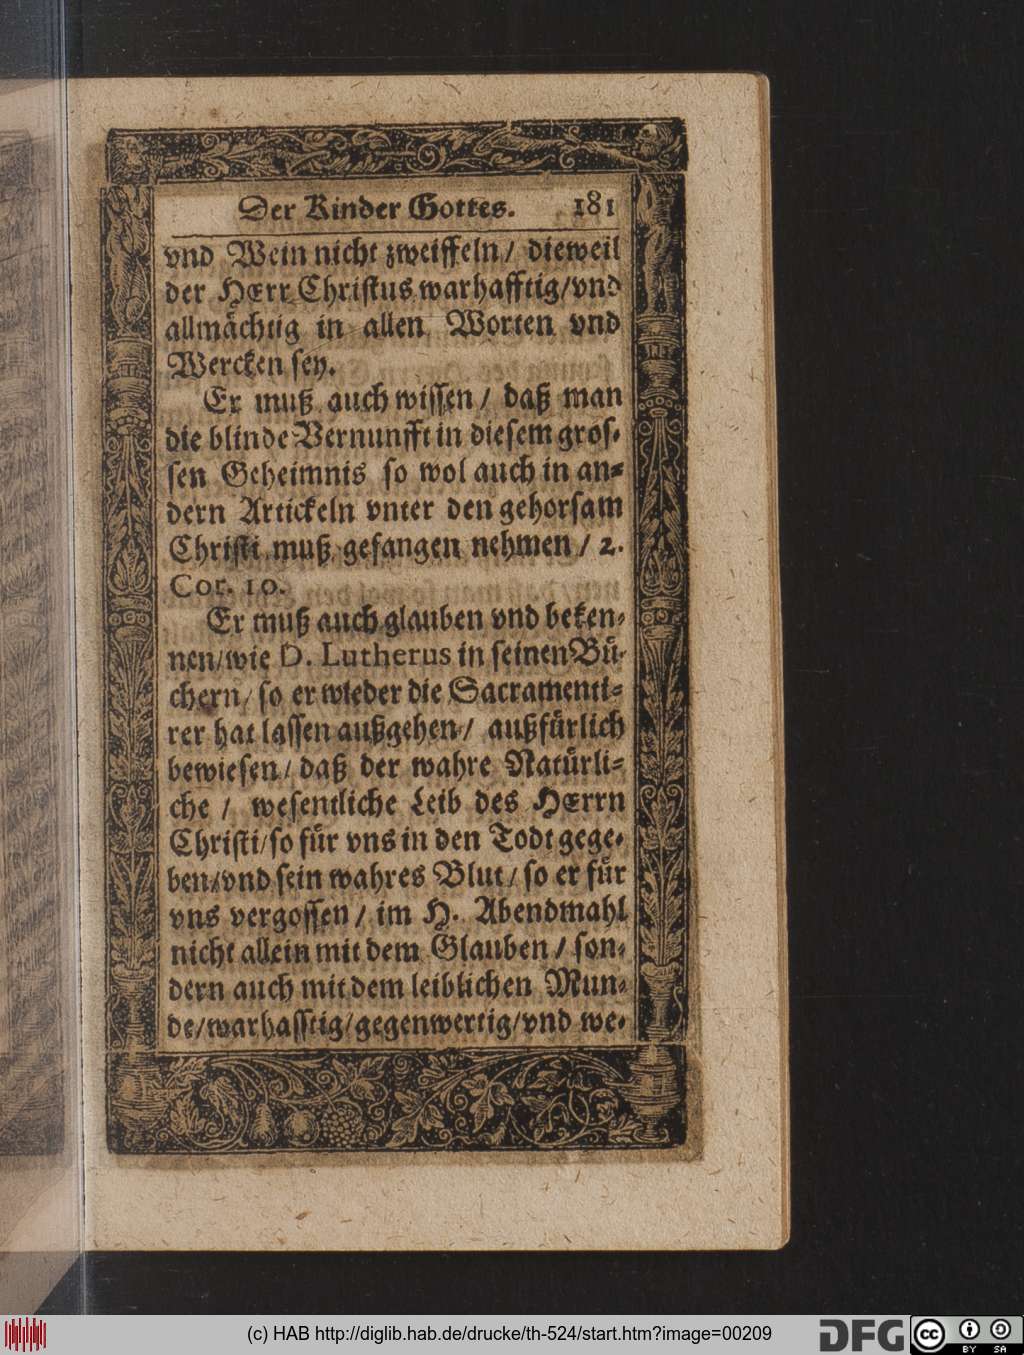 Der Kinder Gottes. 181
vnd Wein nicht zweiffeln / dieweil
der HErr Christus warhafftig/vnd
allmächtig in allen Worten vnd
Wercken sey.
Er muß auch wissen / daß man
die blinde Vernunfft in diesem gros-
sen Geheimnis so wol auch in an-
dern Artickeln vnter den gehorsam
Christi muß gefangen nehmen / 2.
Cor. 10.
Er muß auch glauben vnd beken-
nen/wie D. Lutherus in seinen Bü-
chern/ so er wieder die Sacramenti-
rer hat lassen außgehen / außfürlich
bewiesen/ daß der wahre Natürli-
che / wesentliche Leib des HErrn
Christi/so für vns in den Todt gege-
ben/vnd sein wahres Blut/ so er für
vns vergossen / im H. Abendmahl
nicht allein mit dem Glauben / son-
dern auch mit dem leiblichen Mun-
de/warhafftig/gegenwertig/vnd we-
(c) HAB http://diglib.hab.de/drucke/th-524/start.htm?image=00209
DFG
cc
BY SA